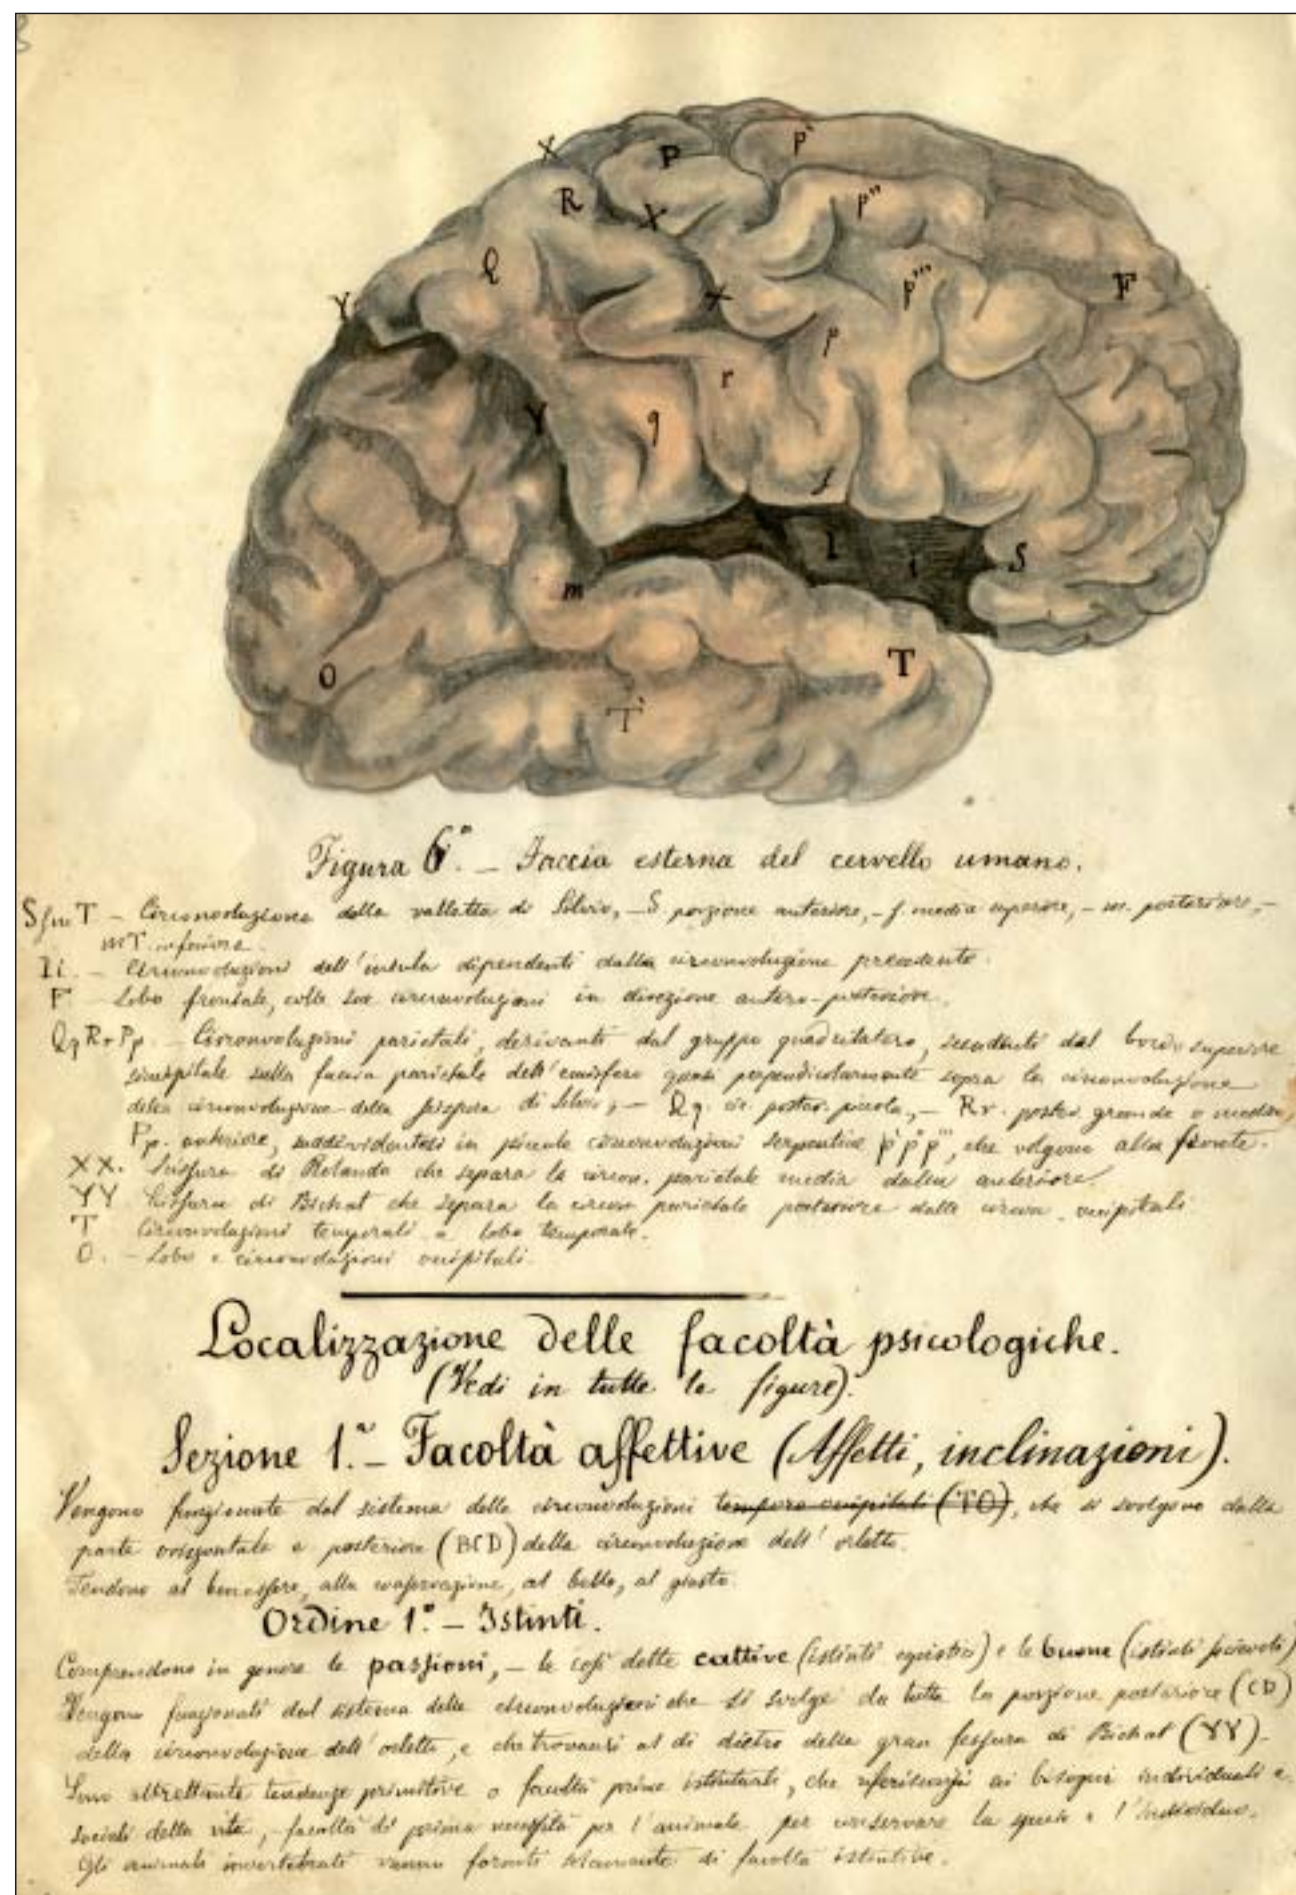 X
P
p'
R
X
p''
Q
X
p'''
F
Y
p
r
Y
q
f
I
i
S
m
O
T
T'
Figura 6ª. – Faccia esterna del cervello umano.
SfmT – Circonvoluzione della valletta di Silvio, – S porzione anteriore, – f. media superiore, – m. posteriore, –
mT. inferiore.
Ii. – Circonvoluzioni dell'insula dipendenti dalla circonvoluzione precedente.
F – Lobo frontale, colle sue circonvoluzioni in direzione antero-posteriore.
Qq Rr Pp. – Circonvoluzioni parietali, derivanti dal gruppo quadrilatero, scendenti dal bordo superiore
sulla faccia parietale dell'emisfero quasi perpendicolarmente sopra la circonvoluzione
della circonvoluzione della scissura di Silvio, – Qq. cir. poster. piccola, – Rr. poster. grande o media,
Pp. anteriore, suddividentesi in piccole circonvoluzioni serpentine p' p'' p''', che volgono alla fronte.
XX. Scissura di Rolando che separa la circon. parietale media dalla anteriore.
YY Scissura di Bichat che separa la circon parietale posteriore dalle circon. occipitali.
T Circonvoluzioni temporali o lobo temporale.
O. – Lobo e circonvoluzioni occipitali.
Localizzazione delle facoltà psicologiche.
(Vedi in tutte le figure).
Sezione 1.ª – Facoltà affettive (Affetti, inclinazioni).
Vengono funzionate dal sistema delle circonvoluzioni temporo occipitali (TO), che si svolgono dalla
parte orizzontale e posteriore (BCD) della circonvoluzione dell'orletto.
Tendono al benessere, alla conservazione, al bello, al giusto.
Ordine 1.º – Istinti.
Comprendono in genere le passioni, – le così dette cattive (istinti egoistici) e le buone (istinti socievoli)
Vengono funzionati dal sistema delle circonvoluzioni che si svolge da tutta la porzione posteriore (CD)
della circonvoluzione dell'orletto, e che trovansi al di dietro della gran fessura di Bichat (YY).
Sono altrettante tendenze primitive o facoltà prime istintuali, che riferisconsi ai bisogni individuali e
sociali della vita, – facoltà di prima necessità per l'animale per conservare la specie e l'individuo.
Gli animali invertebrati vanno forniti solamente di facoltà istintive.